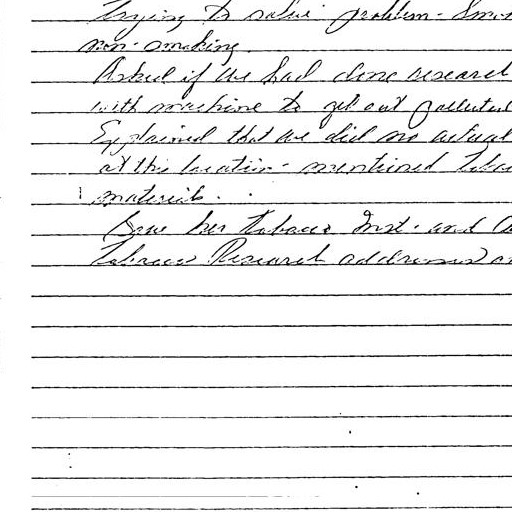 Trying to solve problem - Smo
non-smoking.
Asked if we had done research
with machine to get out
Explained that we did no actual
at this location - mentioned Toba
materials.
Gave her Tobacco Inst. and
Tobacco Research addresses